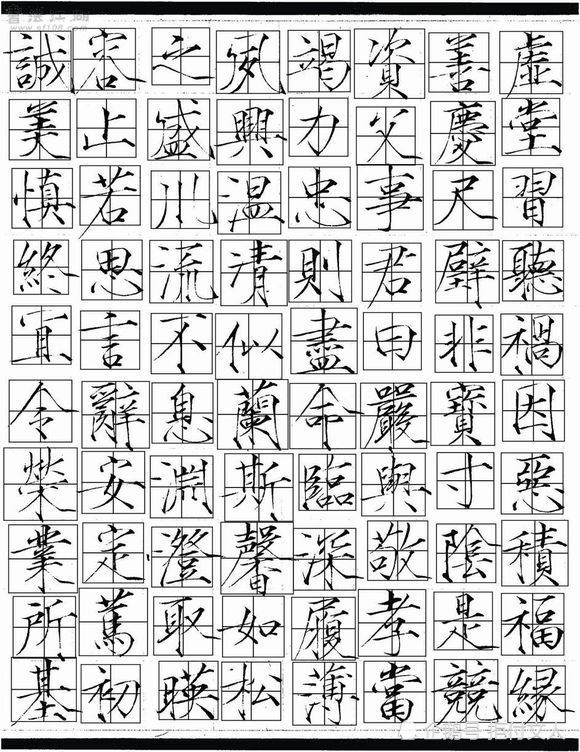 書法江湖
虛堂習聽禍因惡積福緣
善慶尺璧非寶寸陰是競
資父事君曰嚴與敬孝當
竭力忠則盡命臨深履薄
夙興溫清似蘭斯馨如松
之盛川流不息淵澄取暎
容止若思言辭安定篤初
誠美慎終宜令榮業所基